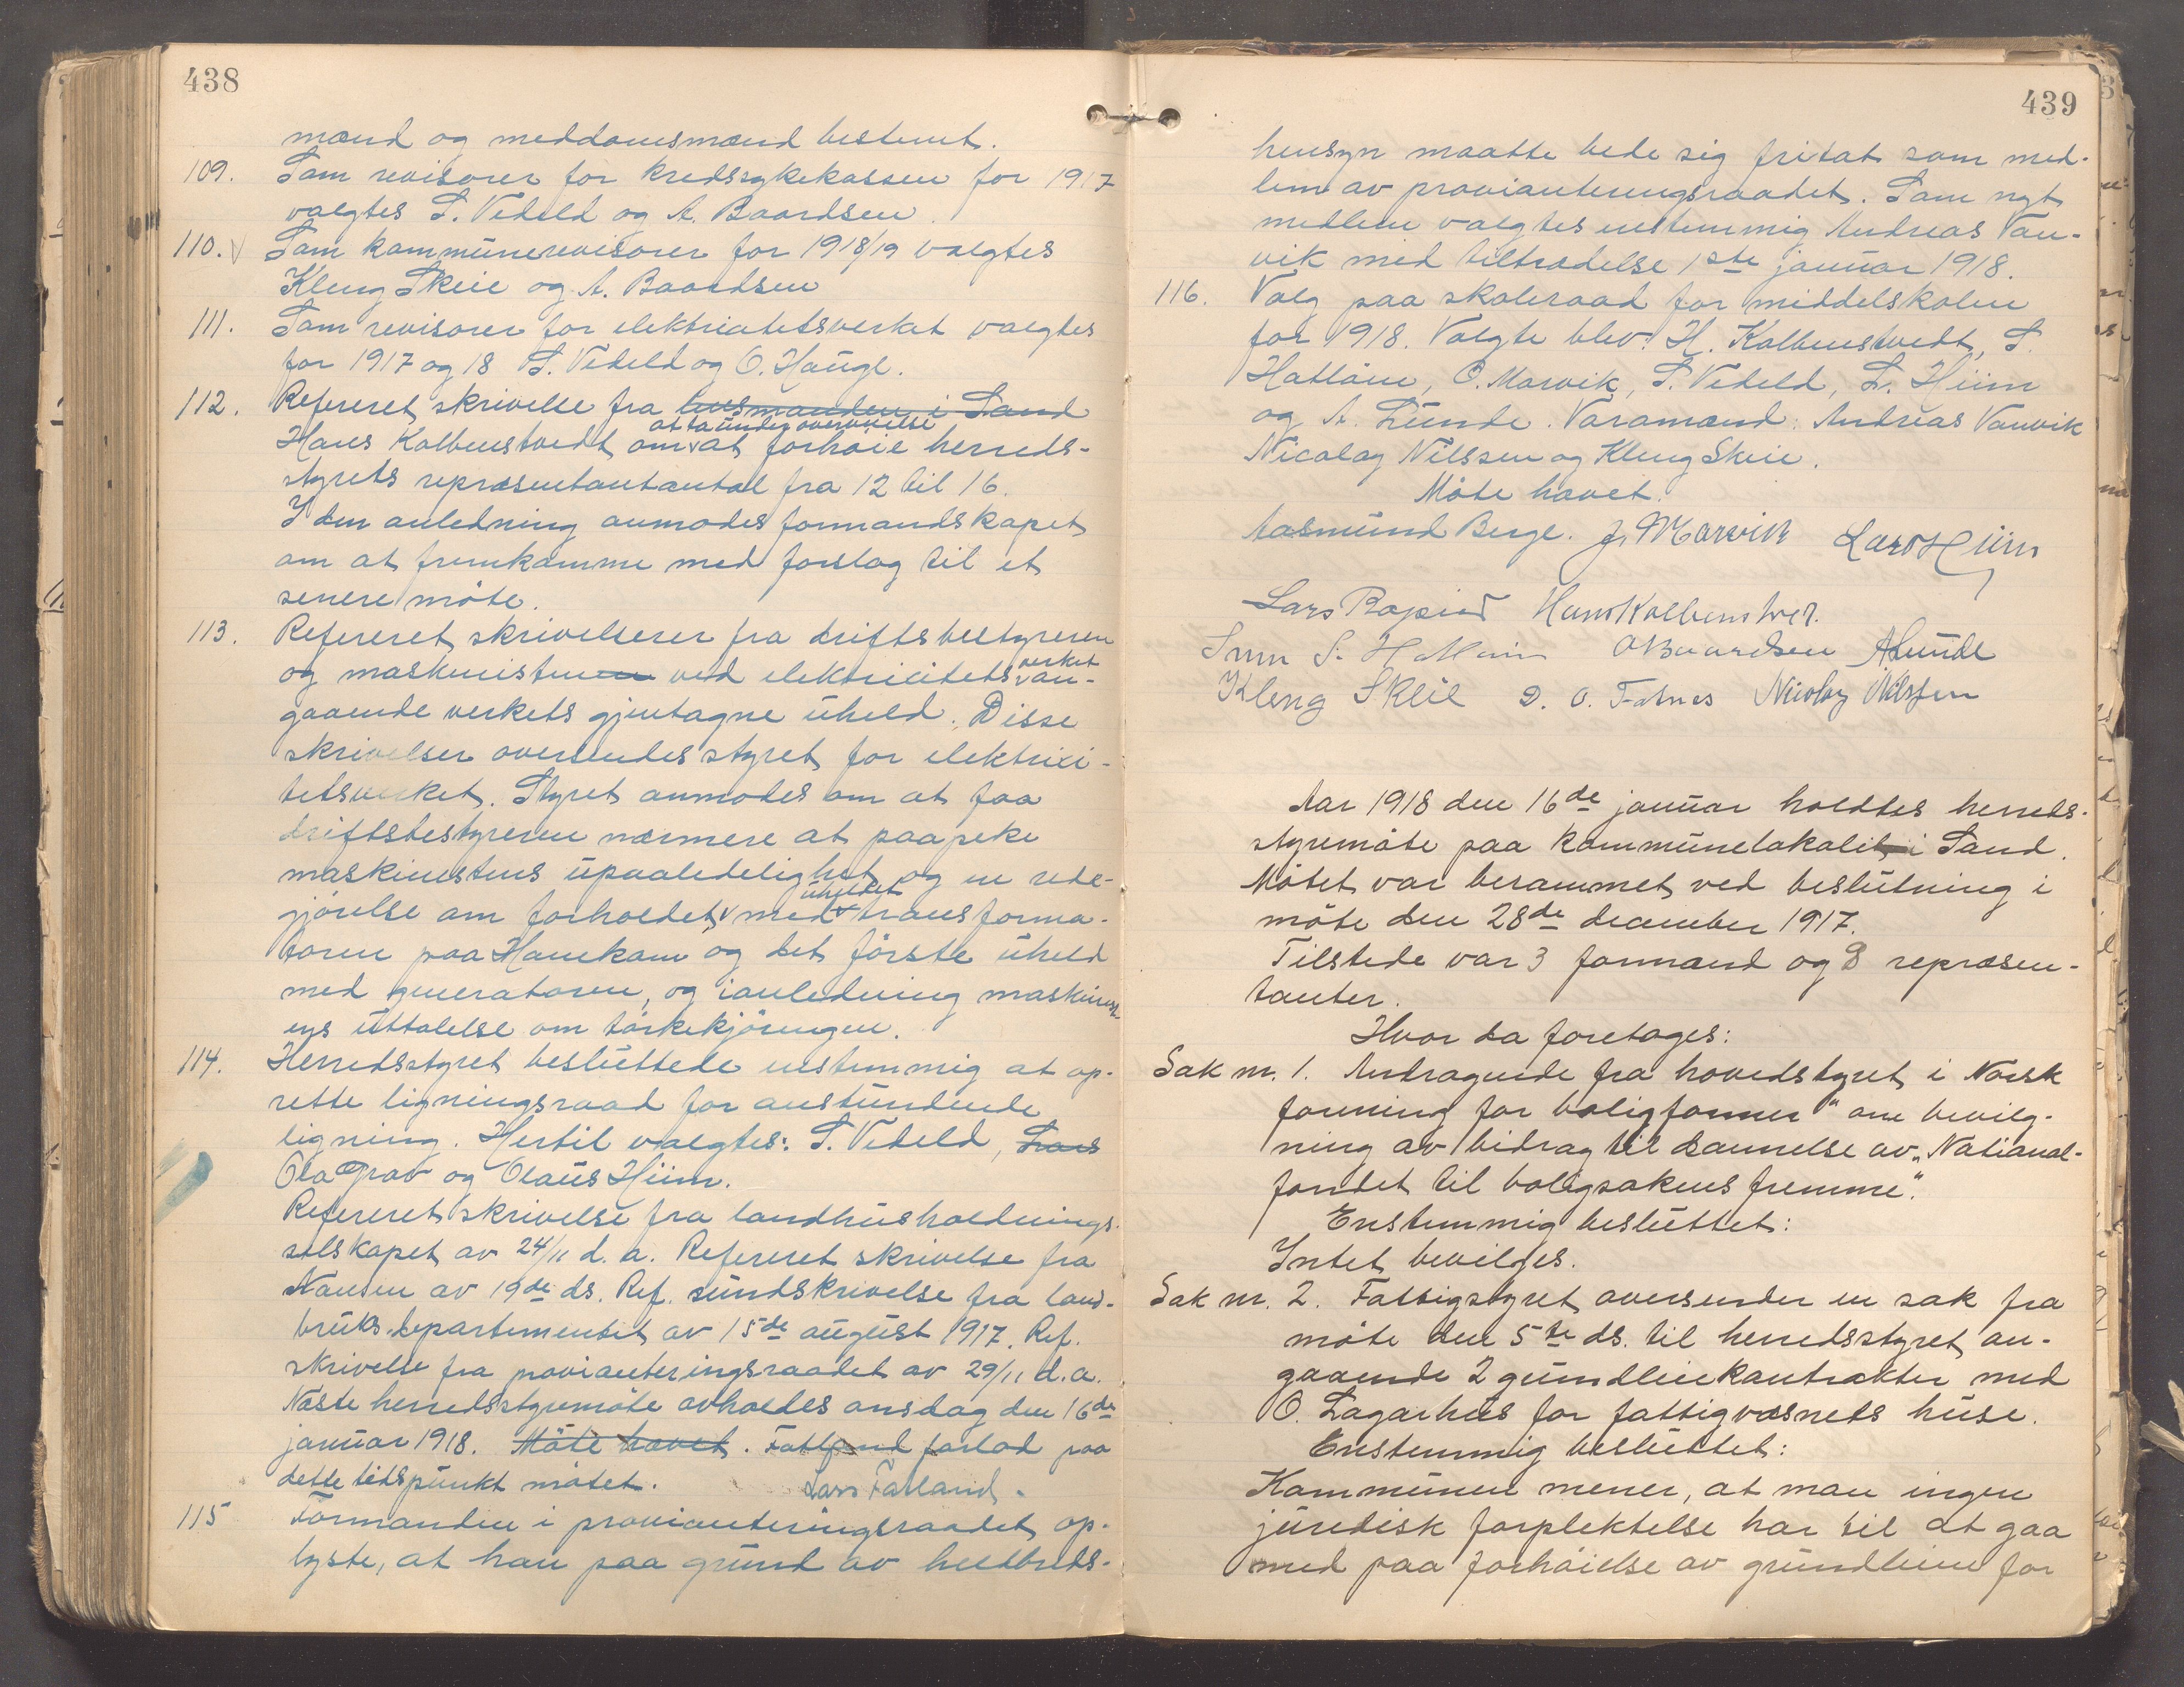 438
mænd og meddomsmænd bestemt.
109. Som revisorer for kredssykekassen for 1917
valgtes S. Vedeld og A. Baardsen.
110. Som kommunerevisorer for 1918/19 valgtes
Kleng Skeie og A. Baardsen
111. Som revisorer for elektricitetsverket valgtes
for 1917 og 18 S. Vedeld og O. Hauge.
112. Refereret skrivelse fra lensmanden i Sand
at ta under overveielse
Hans Kolbenstvedt om at forhøie herreds-
styrets repræsentantantal fra 12 til 16.
I den anledning anmodes formandskapet
om at fremkomme med forslag til et
senere møte.
113. Refereret skrivelserer fra driftsbestyreren
og maskinisten ved elektricitetsverket an-
gaaende verkets gjentagne uheld. Disse
skrivelser oversendes styret for elektrici-
tetsverket. Styret anmodes om at faa
driftsbestyreren nærmere at paapeke
maskinistens upaalidelighet og en rede-
uheldet
gjørelse om forholdet med transforma-
toren paa Hanekam og det første uheld
med generatoren, og i anledning maskinist-
ens uttalelse om tørkekjøringen.
114. Herredsstyret besluttede enstemmig at op-
rette ligningsraad for anstundende
ligning. Hertil valgtes: S. Vedeld, Lars
Ola Grov og Olaus Hiim.
Refereret skrivelse fra landhusholdnings-
selskapet av 24/11 d. a. Refereret skrivelse fra
Nansen av 19de ds. Ref. rundskrivelse fra land-
bruks-departementet av 15de august 1917. Ref.
skrivelse fra provianteringsraadet av 29/11 d.a.
Næste herredsstyremøte avholdes onsdag den 16de
januar 1918. Møte hævet. Fatland forlod paa
dette tidspunkt møtet. Lars Fatland.
115 Formanden i provianteringsraadet op-
lyste, at han paa grund av helbreds-
439
hensyn maatte bede sig fritat som med-
lem av provianteringsraadet. Som nyt
medlem valgtes enstemmig Andreas Van-
vik med tiltrædelse 1ste januar 1918.
116. Valg paa skoleraad for middelskolen
for 1918. Valgte blev: H. Kolbenstvedt, S.
Hatløin, O. Marvik, S. Vedeld, L. Hiim
og A. Lunde. Varamænd: Andreas Vanvik
Nicolay Nilssen og Kleng Skeie.
Møte hævet.
Aasmund Berge. J. Marvik Lars Hiim
Lars Hans Kolbenstvedt.
S. A Baardsen A Lunde
Kleng Skeie D. O. Fatnes Nicolay Nilssen
Aar 1918 den 16de januar holdtes herreds-
styremøte paa kommunelokalet i Sand.
Møtet var berammet ved beslutning i
møte den 28de december 1917.
Tilstede var 3 formænd og 8 repræsen-
tanter.
Hvor da foretoges:
Sak nr. 1. Andragende fra hovedstyret i Norsk
forening for boligformer" om bevilg-
ning av bidrag til dannelse av „National-
fondet til boligsakens fremme".
Enstemmig besluttet:
Intet bevilges.
Sak nr. 2. Fattigstyret oversender en sak fra
møte den 5te ds. til herredsstyret an-
gaaende 2 grundleiekontrakter med
O. Lagarhus for fattigvæsnets huse.
Enstemmig besluttet:
Kommunen mener, at man ingen
juridisk forplektelse har til at gaa
med paa forhøielse av grundleien for